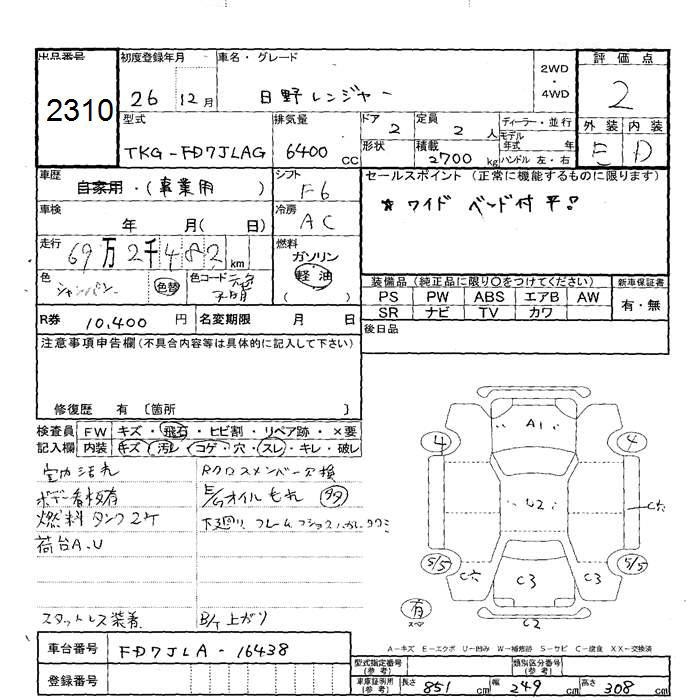 出品番号 2310
初度登録年月 26 12月
車名・グレード 日野レンジャー
2WD・4WD
評価点 2
型式 TKG-FD7JLAG
排気量 6400 CC
ドア 2
形状
定員 2 人
積載 2700 kg
ディーラー・並行
モデル年式 年
ハンドル 左・右
外装 E 内装 D
車歴 自家用・(事業用)
シフト F6
セールスポイント (正常に機能するものに限ります)
＊ワイド ベッド付 平。
車検 年 月( 日)
冷房 AC
走行 69万2千482 km
燃料 ガソリン 軽油 ( )
色 シャンパン 色替
色コード 不明
装備品 (純正品に限り○をつけてください)
新車保証書 有・無
PS PW ABS エアB AW
SR ナビ TV カワ
R券 10,400 円
名変期限 月 日
後日品
注意事項申告欄(不具合内容等は具体的に記入して下さい)
修復歴 有 〔箇所 〕
検査員記入欄
FW キズ・飛石・ヒビ割・リペア跡・×要
内装 キズ・汚レ・コゲ・穴・スレ・キレ・破レ
室内汚れ
Rクロスメンバー交換
ボデー看板有
E/Gオイルもれ 多
燃料タンク2ケ
下廻り、フレーム
荷台A.U
スタットレス装着
B/T上がり
A1
4 4
U2
C穴
5/5 5/5
C穴 C3 C3
有
C2
A－キズ E－エクボ U－凹み W－補修跡 S－サビ C－腐食 XX－交換済
車台番号 FD7JLA-16438
登録番号
型式指定番号(参考)
類別区分番号(参考)
車庫証明用(参考) 長さ 851 cm 幅 249 cm 高さ 308 cm